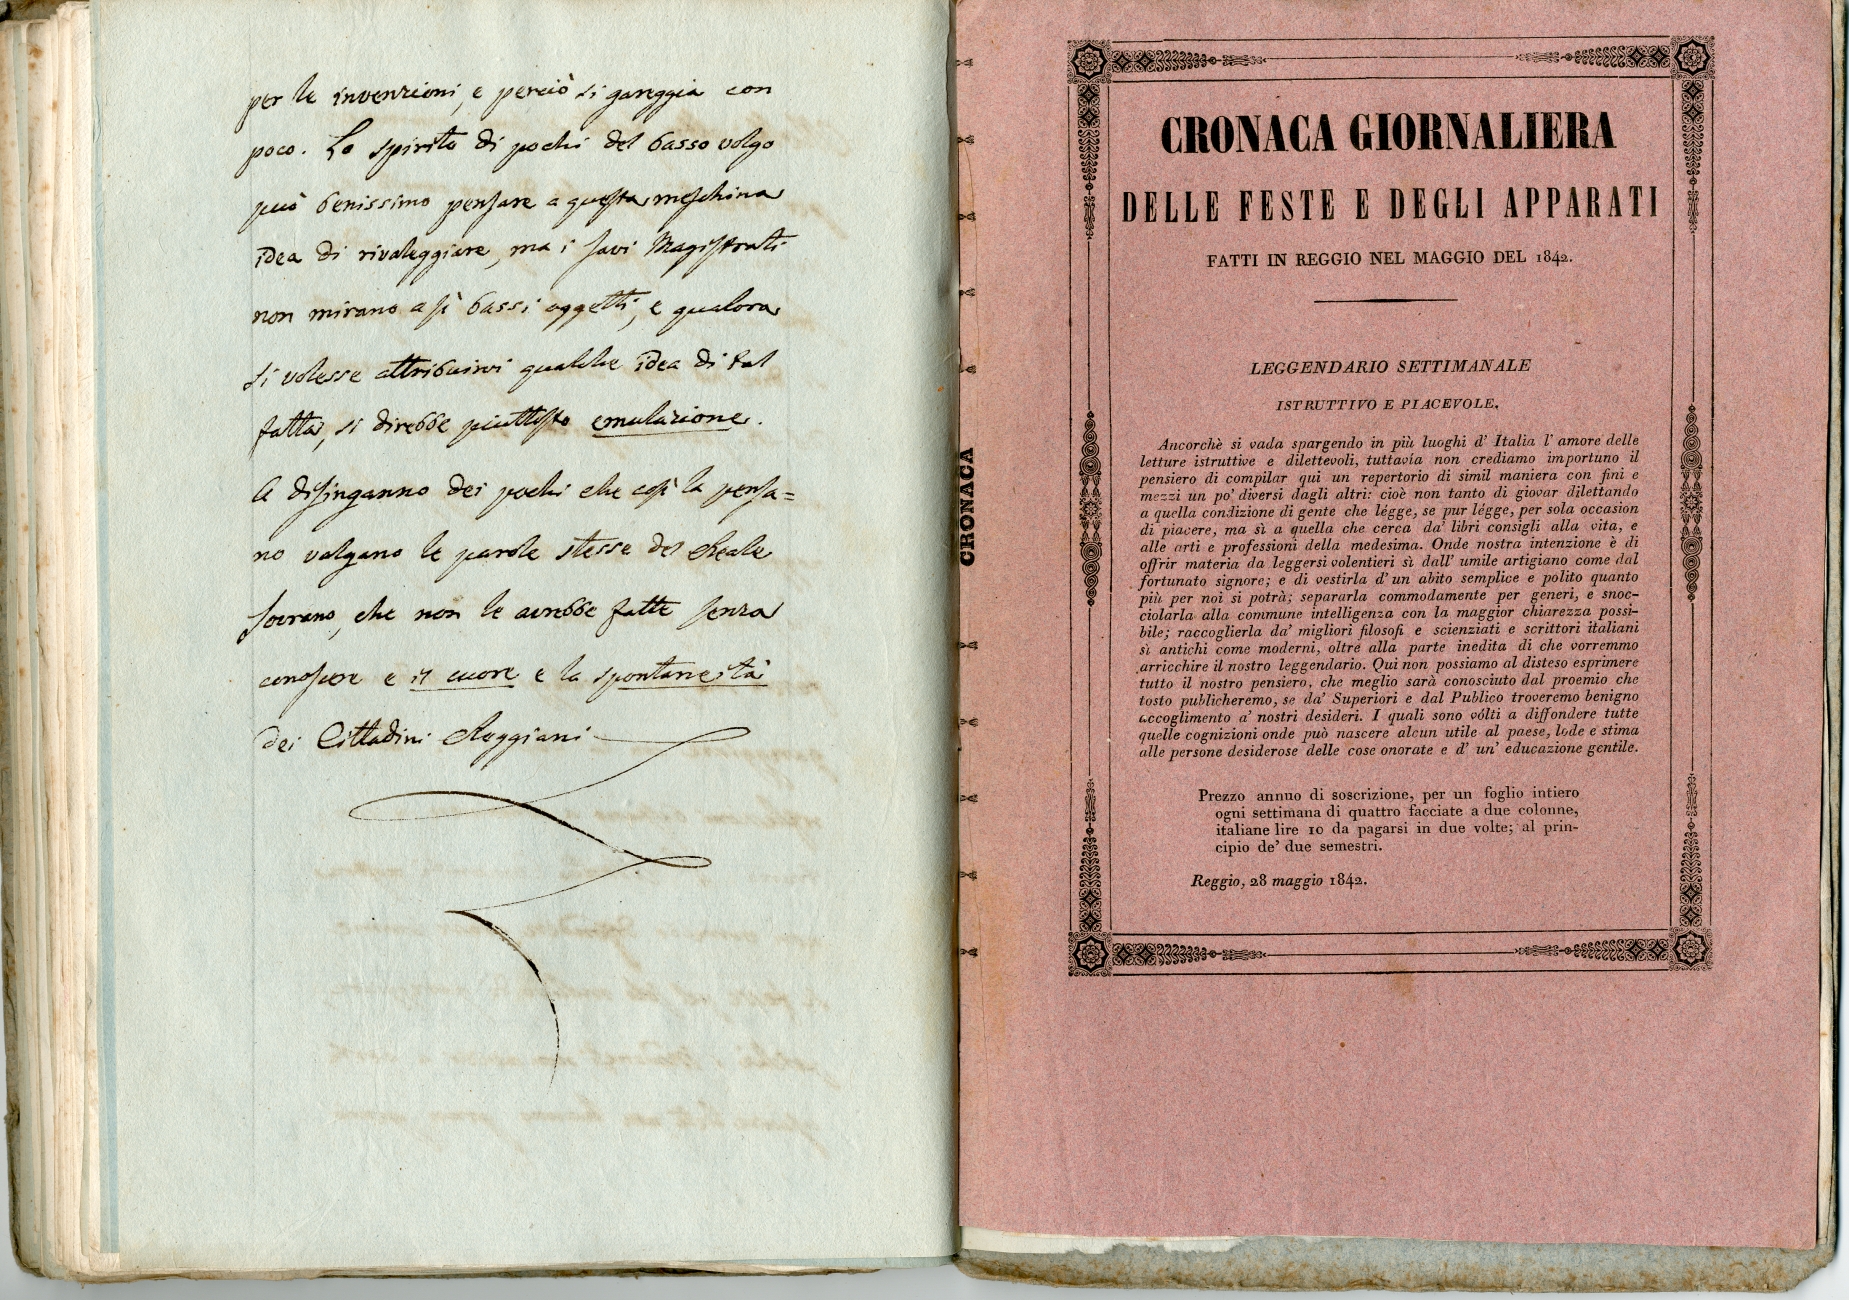 per le invenzioni, e perciò si gareggia con
poco. Lo spirito di pochi del basso volgo
può benissimo pensare a questa meschina
idea di rivaleggiare, ma i savi Magistrati
non mirano a sì bassi oggetti, e qualora
si volesse attribuirvi qualche idea di tal
fatta, si direbbe piuttosto emulazione.
A disinganno dei pochi che così la pensa=
no valgano le parole stesse del Reale
Sovrano, che non le avrebbe fatte senza
conoscere e il cuore e la spontaneità
dei Cittadini Reggiani
CRONACA
CRONACA GIORNALIERA
DELLE FESTE E DEGLI APPARATI
FATTI IN REGGIO NEL MAGGIO DEL 1842.
LEGGENDARIO SETTIMANALE
ISTRUTTIVO E PIACEVOLE.
Ancorchè si vada spargendo in più luoghi d' Italia l' amore delle
letture istruttive e dilettevoli, tuttavía non crediamo importuno il
pensiero di compilar qui un repertorio di simil maniera con fini e
mezzi un po' diversi dagli altri: cioè non tanto di giovar dilettando
a quella condizione di gente che légge, se pur légge, per sola occasion
di piacere, ma sì a quella che cerca da' libri consigli alla vita, e
alle arti e professioni della medesima. Onde nostra intenzione è di
offrir materia da leggersi volentieri sì dall' umile artigiano come dal
fortunato signore; e di vestirla d' un abito semplice e polito quanto
più per noi si potrà; separarla commodamente per generi, e snoc-
ciolarla alla commune intelligenza con la maggior chiarezza possi-
bile; raccoglierla da' migliori filosofi e scienziati e scrittori italiani
sì antichi come moderni, oltre alla parte inedita di che vorremmo
arricchire il nostro leggendario. Qui non possiamo al disteso esprimere
tutto il nostro pensiero, che meglio sarà conosciuto dal proemio che
tosto publicheremo, se da' Superiori e dal Publico troveremo benigno
accoglimento a' nostri desideri. I quali sono vólti a diffondere tutte
quelle cognizioni onde può nascere alcun utile al paese, lode e stima
alle persone desiderose delle cose onorate e d' un' educazione gentile.
Prezzo annuo di soscrizione, per un foglio intiero
ogni settimana di quattro facciate a due colonne,
italiane lire 10 da pagarsi in due volte; al prin-
cipio de' due semestri.
Reggio, 28 maggio 1842.